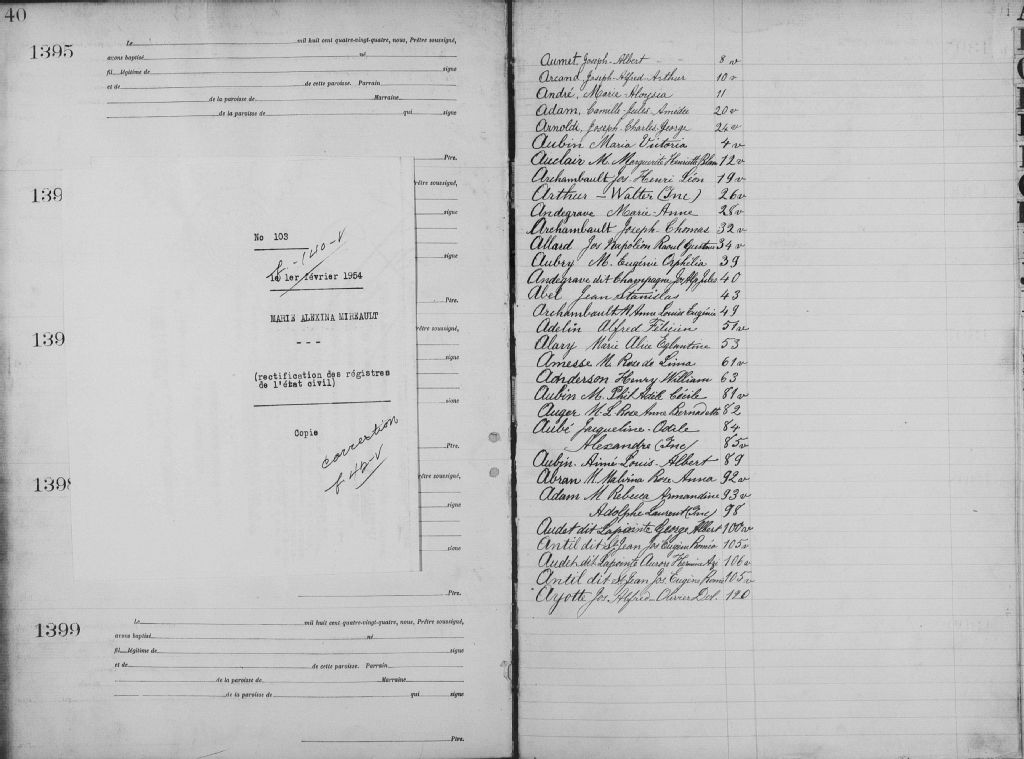 40
1395
Le mil huit cent quatre-vingt-quatre, nous, Prêtre soussigné,
avons baptisé né
fil légitime de signe
et de de cette paroisse. Parrain
de la paroisse de Marraine
de la paroisse de qui signe
Ptre.
139
rêtre soussigné,
signe
signe
Ptre.
No 103
le 1er février 1954
MARIE ALEXINA MIREAULT
- - -
(rectification des régistres
de l'état civil)
Copie
correction
f. 40-v
139
rêtre soussigné,
signe
signe
Ptre.
1398
rêtre soussigné,
signe
signe
Ptre.
1399
Le mil huit cent quatre-vingt-quatre, nous, Prêtre soussigné,
avons baptisé né
fil légitime de signe
et de de cette paroisse. Parrain
de la paroisse de Marraine
de la paroisse de qui signe
Ptre.
Aumet, Joseph-Albert 8 v
Arcand, Joseph-Alfred-Arthur 10 v
André, Marie-Aloysia 11
Adam, Camille-Jules-Amédée 20 v
Arnoldi, Joseph-Charles-George 24 v
Aubin Maria Victoria 4 v
Auclair M. Marguerite Henriette Blan 12 v
Archambault Jos. Henri Léon 19 v
Arthur - Walter (Inc) 26 v
Andegrave Marie-Anne 28 v
Archambault Joseph Thomas 32 v
Allard Jos Napoléon Raoul Gustave 34 v
Aubry M. Eugénie Orphélia 39
Andegrave dit Champagne Jos Alp Jules 40
Abel Jean Stanislas 43
Archambault M Anne Louise Eugénie 49
Adelin Alfred Félicien 51 v
Alary Marie Alice Eglantine 53
Amesse M. Rose de Lima 61 v
Anderson Henry William 63
Aubin M. Phil Adèle Cécile 81 v
Auger M. L. Rose Anne Bernadette 82
Aubé Jacqueline-Odile 84
Alexandre (Inc) 85 v
Aubin Aimé Louis-Albert 89
Abran M. Malvina Rose Anna 92 v
Adam M Rebecca Armandine 93 v
Adolphe Laurent (Inc) 98
Audet dit Lapointe George Albert 100 v
Antil dit St Jean Jos Eugène Roméo 105 v
Audet dit Lapointe Aurore Hermine 106 v
Antil dit St Jean Jos. Eugène Romé 105 v
Ayotte Jos. Alfred-Olivier Del. 120